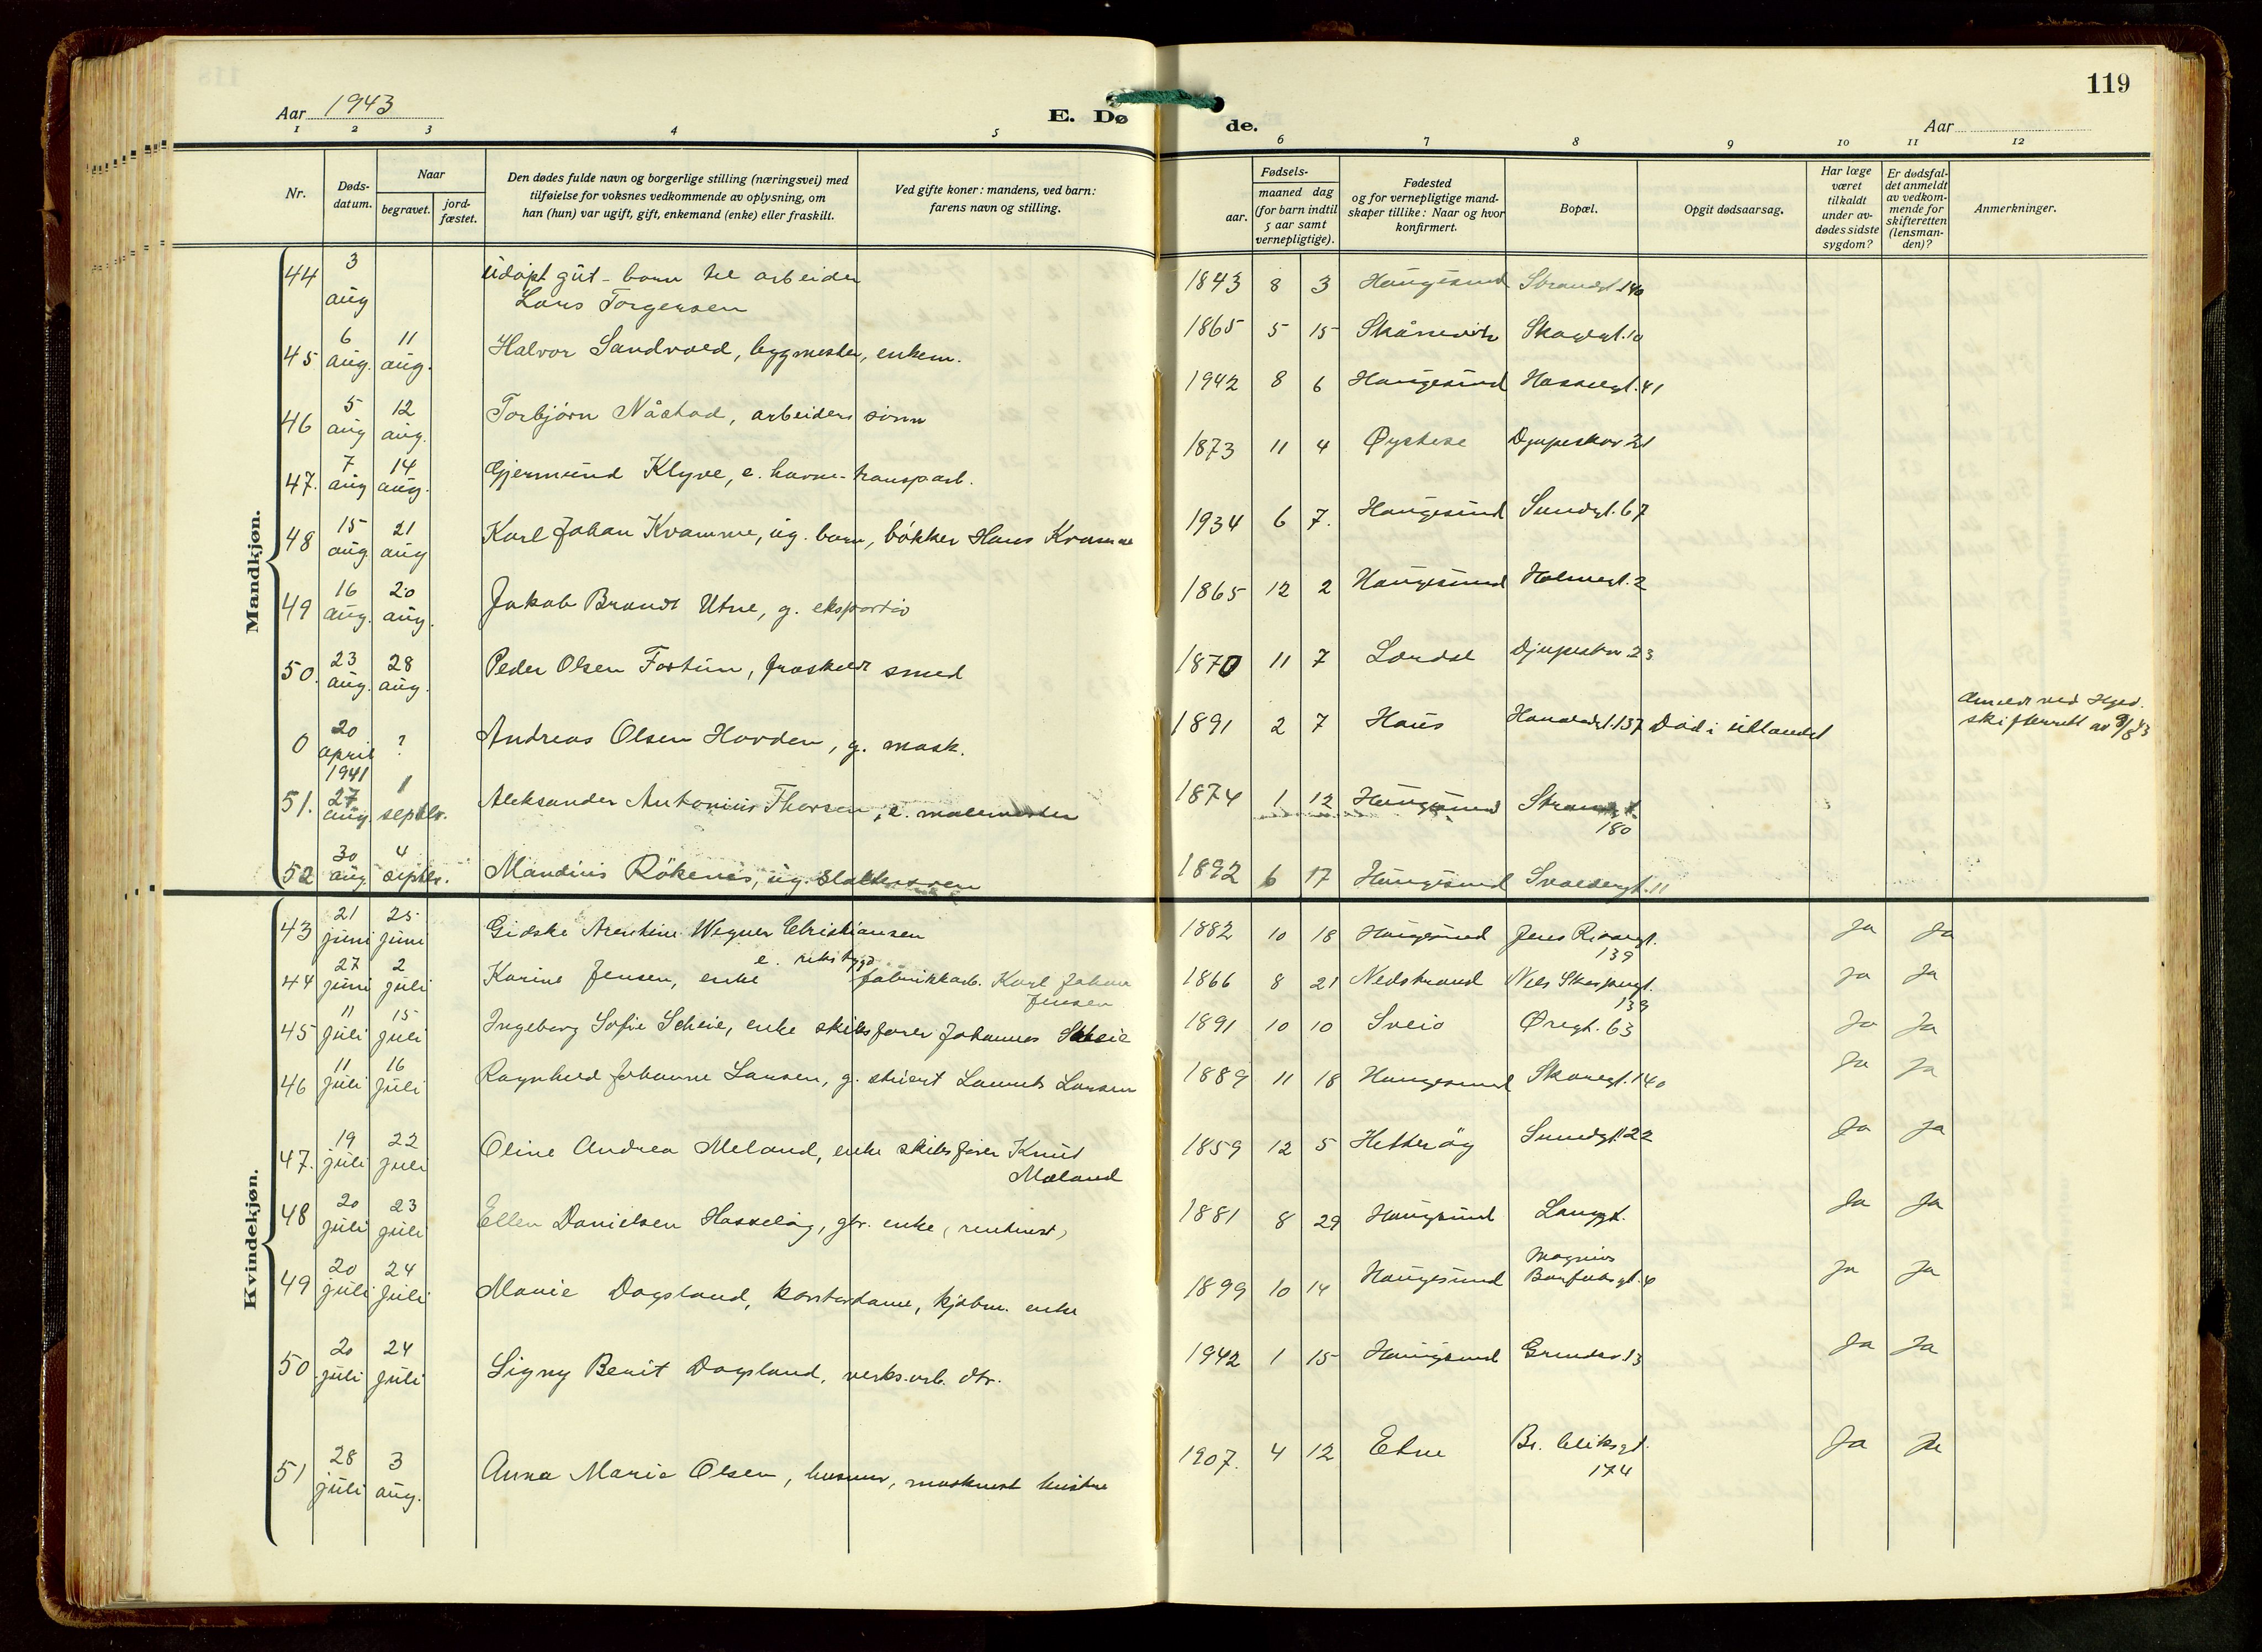 119
Aar 1943
E. Dø
de.
Aar
1 2 3 4 5
6 7 8 9 10 11 12
Nr.
Døds-
datum.
Naar
begravet.
jord-
fæstet.
Den dødes fulde navn og borgerlige stilling (næringsvei) med
tilføielse for voksnes vedkommende av oplysning, om
han (hun) var ugift, gift, enkemand (enke) eller fraskilt.
Ved gifte koner: mandens, ved barn:
farens navn og stilling.
Fødsels-
aar.
maaned dag
(for barn indtil
5 aar samt
vernepligtige).
Fødested
og for vernepligtige mand-
skaper tillike: Naar og hvor
konfirmert.
Bopæl.
Opgit dødsaarsag.
Har læge
været
tilkaldt
under av-
dødes sidste
sygdom?
Er dødsfal-
det anmeldt
av vedkom-
mende for
skifteretten
(lensman-
den)?
Anmerkninger.
Mandkjøn.
44 3 aug udøpt gut - barn til arbeider
Lars Torgersen 1843 8 3 Haugesund Strandgt. 140
45 6 aug. 11 aug. Halvor Sandvold, byggmester, enkem. 1865 5 15 Skånevik 10
46 5 aug 12 aug. Torbjørn Nåstad, arbeiders sønn 1942 8 6 Haugesund Hasselgt. 41
47. 7 aug 14 aug. Gjermund Klyve, e. havne-transp.arb. 1873 11 4 Øystese Djupeskar 21
48 15 aug. 21 aug Karl Johan Kvamme, ug. barn, bøkker Hans Kvamme 1934 6 7. Haugesund Sundgt. 67
49 16 aug. 20 aug. Jakob Brandt Utne, g. eksportør 1865 12 2 Haugesund Holmegt. 2
50. 23 aug. 28 aug. Peder Olsen Fortun, fraskilt smed 1870 11 7 Lærdal Djupeskar 23
0 20 april 1941 ? Andreas Olsen Hovden, g. mask. 1891 2 7 Haus 137 Død i utlandet
Anmeldt ved Hgsd.
skifterett av 9/8 43
51. 27 aug. 1 septbr. Aleksander Antonius Thorsen, e. malermester 1874 1 12 Haugesund Strandgt.
180
52 30 aug 4 septbr. Mandius Røkenes, ug. 1892 6 17 Haugesund Svoldergt. 11
Kvindekjøn.
43 21 juni 25 juni Gidske Arentine Wegner Christiansen
e. 1882 10 18 Haugesund Jens Risøegt.
139 Ja Ja
44 27 juni 2 juli Karine Jensen, enke fabrikkarb. Karl Johan
Jensen 1866 8 21 Nedstrand Nils Skorpengt.
139 Ja Ja
45 11 juli 15 juli Ingeborg Sofie Scheie, enke skibsfører Johannes Scheie 1891 10 10 Sveio Øregt. 63 Ja Ja
46 11 juli 16 juli Ragnhild Johanne Larsen, g. stuert Laurits Larsen 1889 11 18 Haugesund Skaregt. 140 Ja Ja
47. 19 juli 22 juli Oline Andrea Meland, enke skibsfører Knud
Mæland 1859 12 5 Hitterøy Sundgt. 22 Ja Ja
48 20 juli 23 juli Ellen Danielsen Hasseløy, gbr. enke 1881 8 29 Haugesund Langgt. Ja Ja
49 20 juli 24 juli Marie Dagsland, kontordame, kjøbm. enke 1899 10 14 Haugesund Magnus
Barfodsgt. Ja Ja
50 20 juli 24 juli Signy Berit Dagsland, verks.arb. dtr. 1942 1 15 Haugesund 13 Ja Ja
51 28 juli 3 aug. Anna Marie Olsen, husmor, maskinist hustru 1907. 4 12 Etne
174 Ja Ja